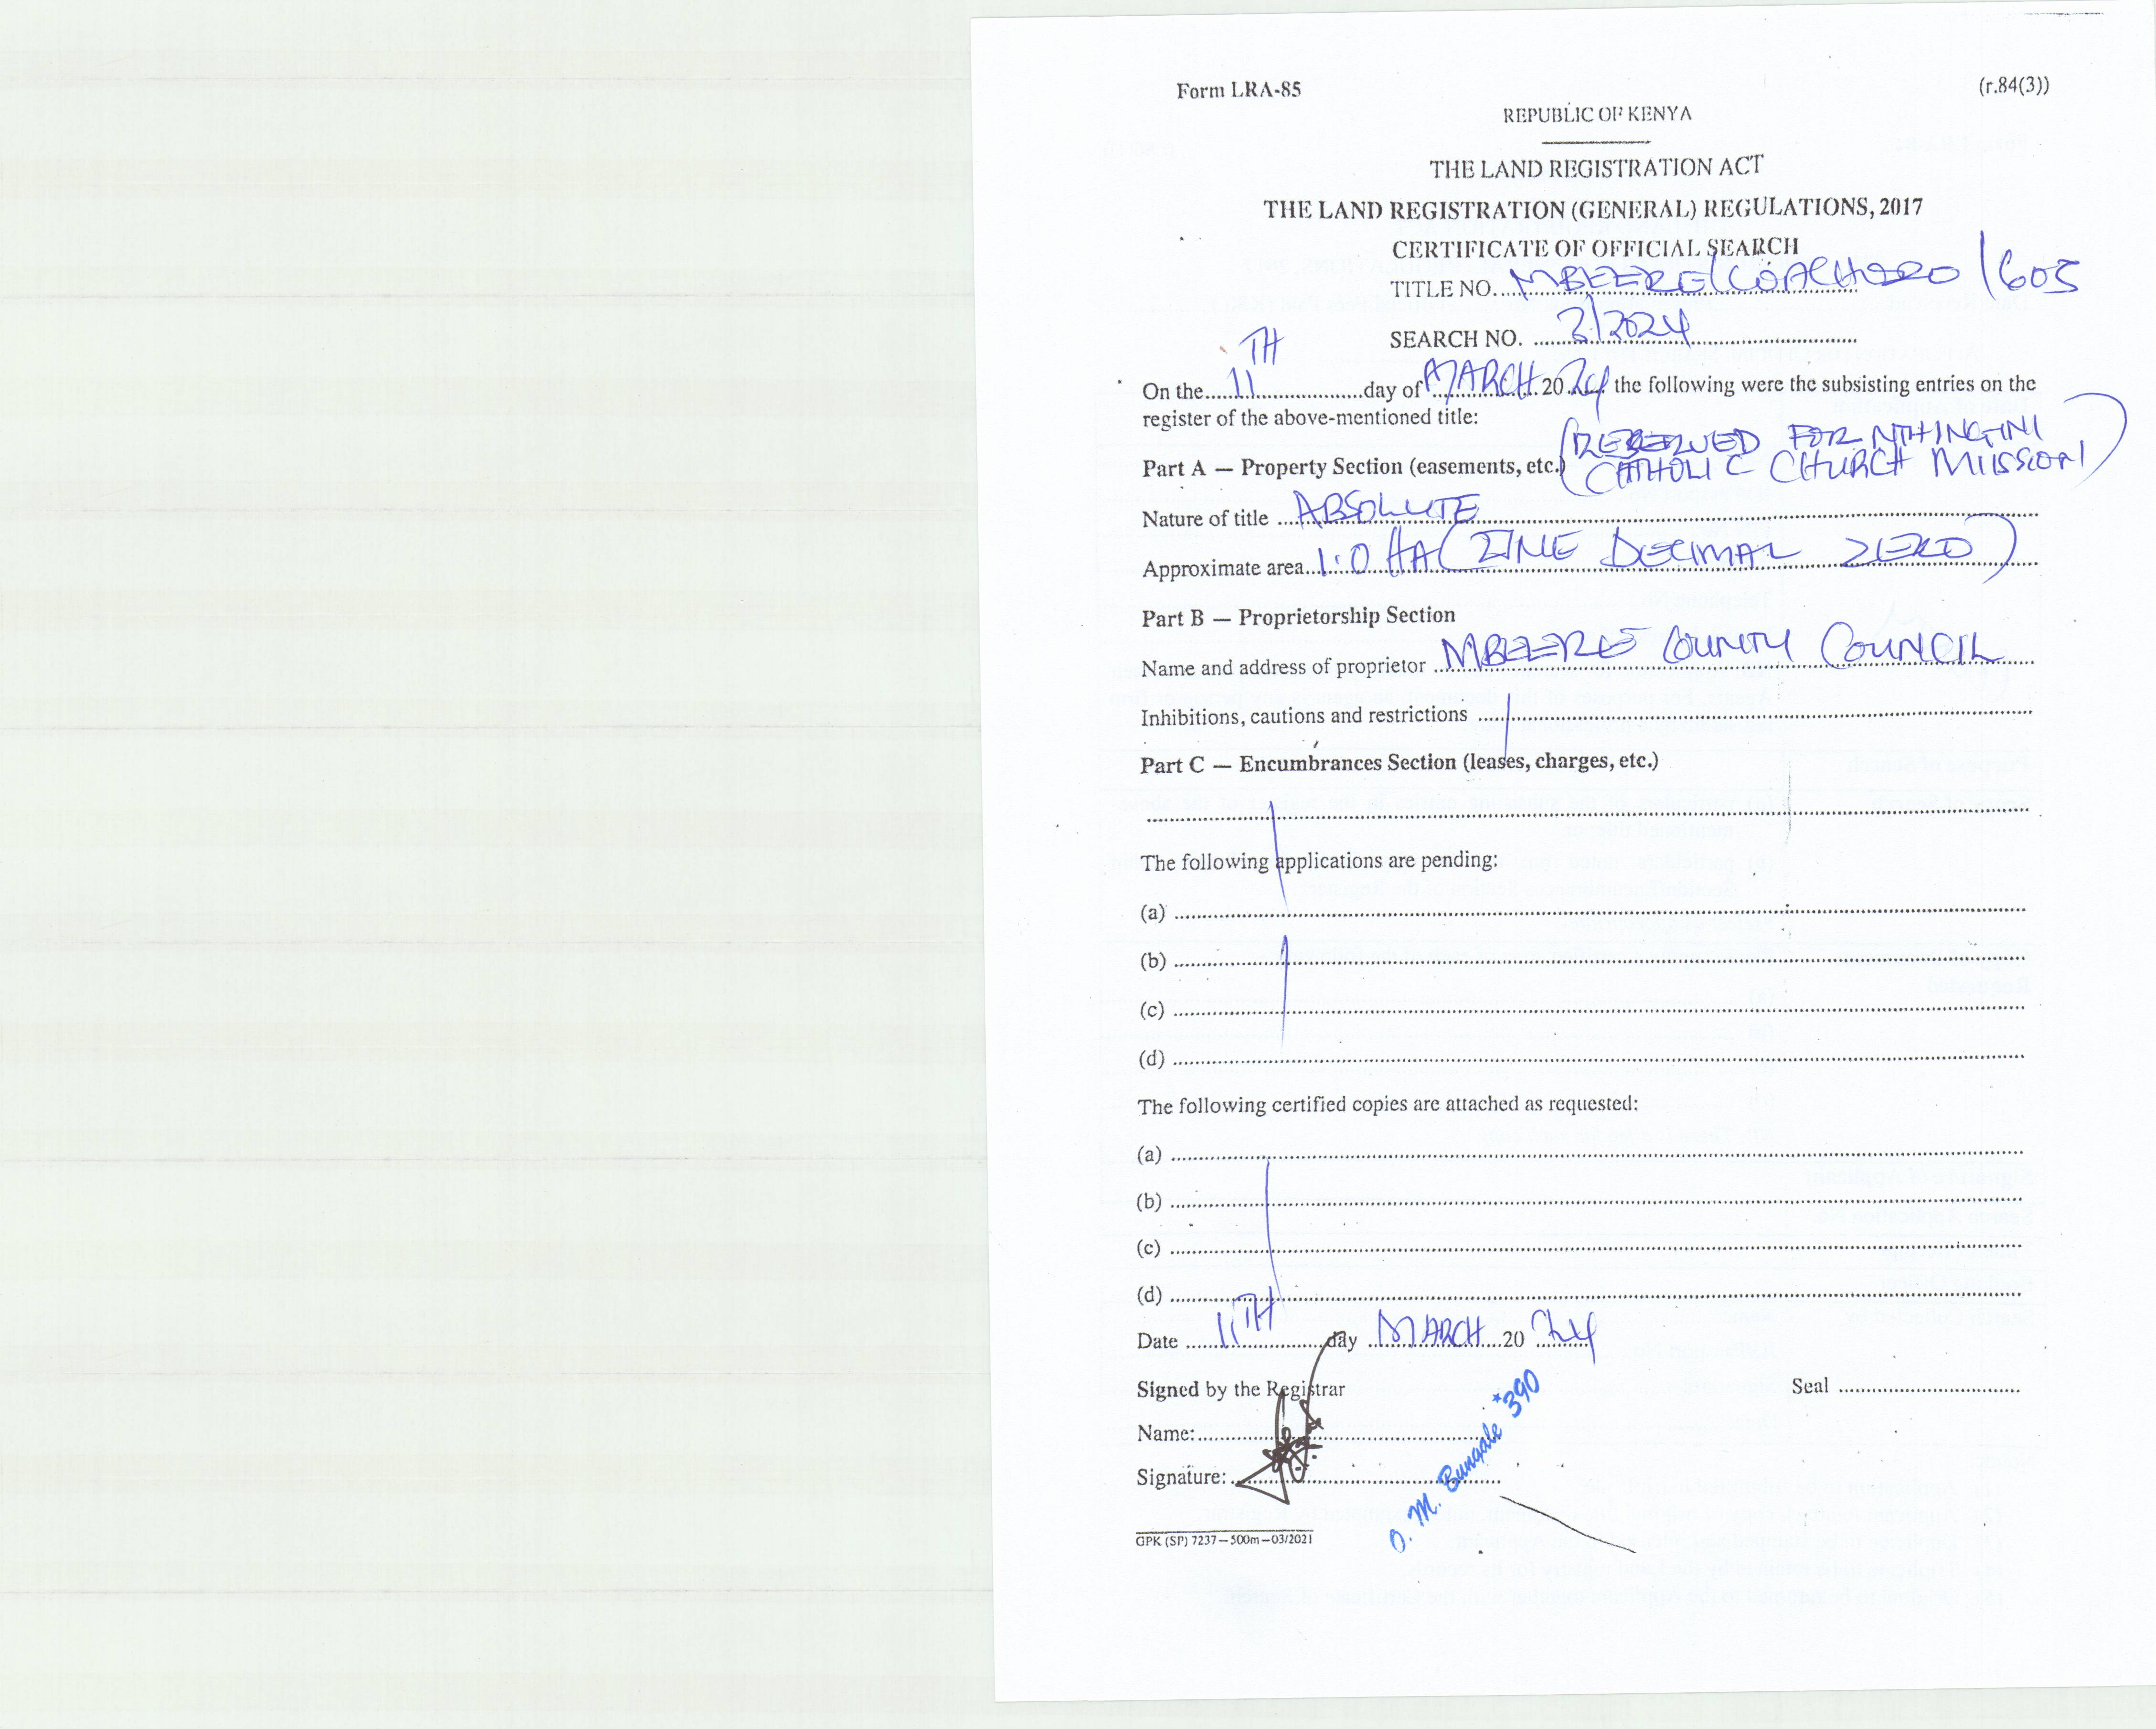 Form LRA-85 (r.84(3))
REPUBLIC OF KENYA
THE LAND REGISTRATION ACT
THE LAND REGISTRATION (GENERAL) REGULATIONS, 2017
CERTIFICATE OF OFFICIAL SEARCH
TITLE NO. MBEERE/ /605
SEARCH NO. 3/2024
On the 11TH day of MARCH 2024 the following were the subsisting entries on the
register of the above-mentioned title:
Part A — Property Section (easements, etc.) (RESERVED FOR NTHINGINI
CATHOLIC CHURCH MISSION)
Nature of title ABSOLUTE
Approximate area 1.0 HA (ONE DECIMAL ZERO)
Part B — Proprietorship Section
Name and address of proprietor MBEERE COUNTY COUNCIL
Inhibitions, cautions and restrictions
Part C — Encumbrances Section (leases, charges, etc.)
The following applications are pending:
(a)
(b)
(c)
(d)
The following certified copies are attached as requested:
(a)
(b)
(c)
(d)
Date 11TH day MARCH 2024
Signed by the Registrar Seal
Name:
Signature:
O. M. Bungale *390
GPK (SP) 7237—500m—03/2021